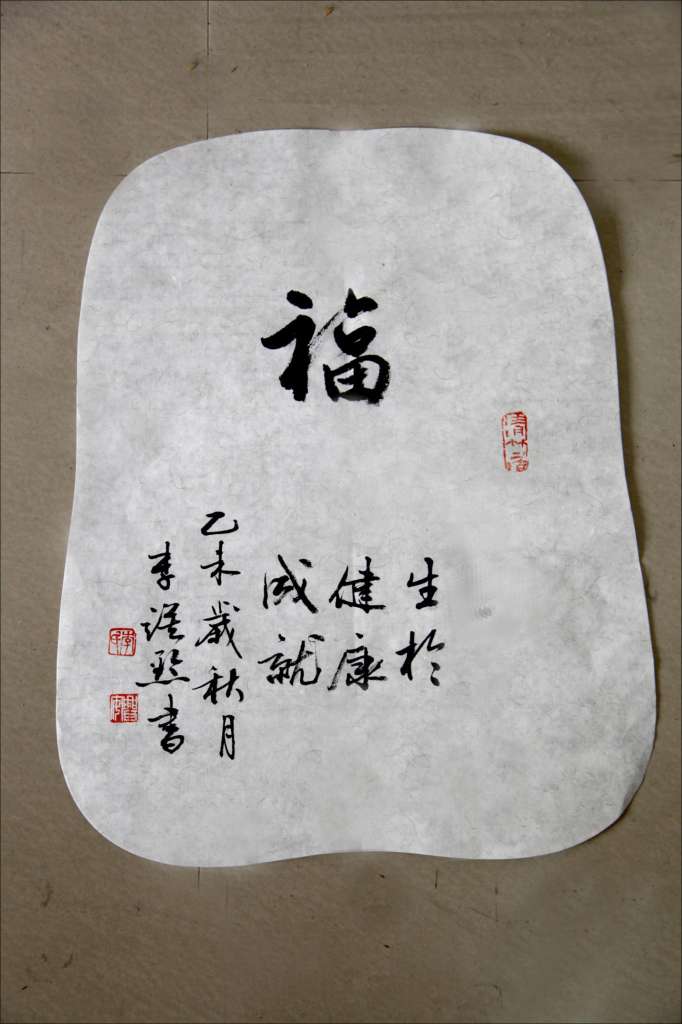 福
生於
健康
成就
乙未歲秋月
李
書